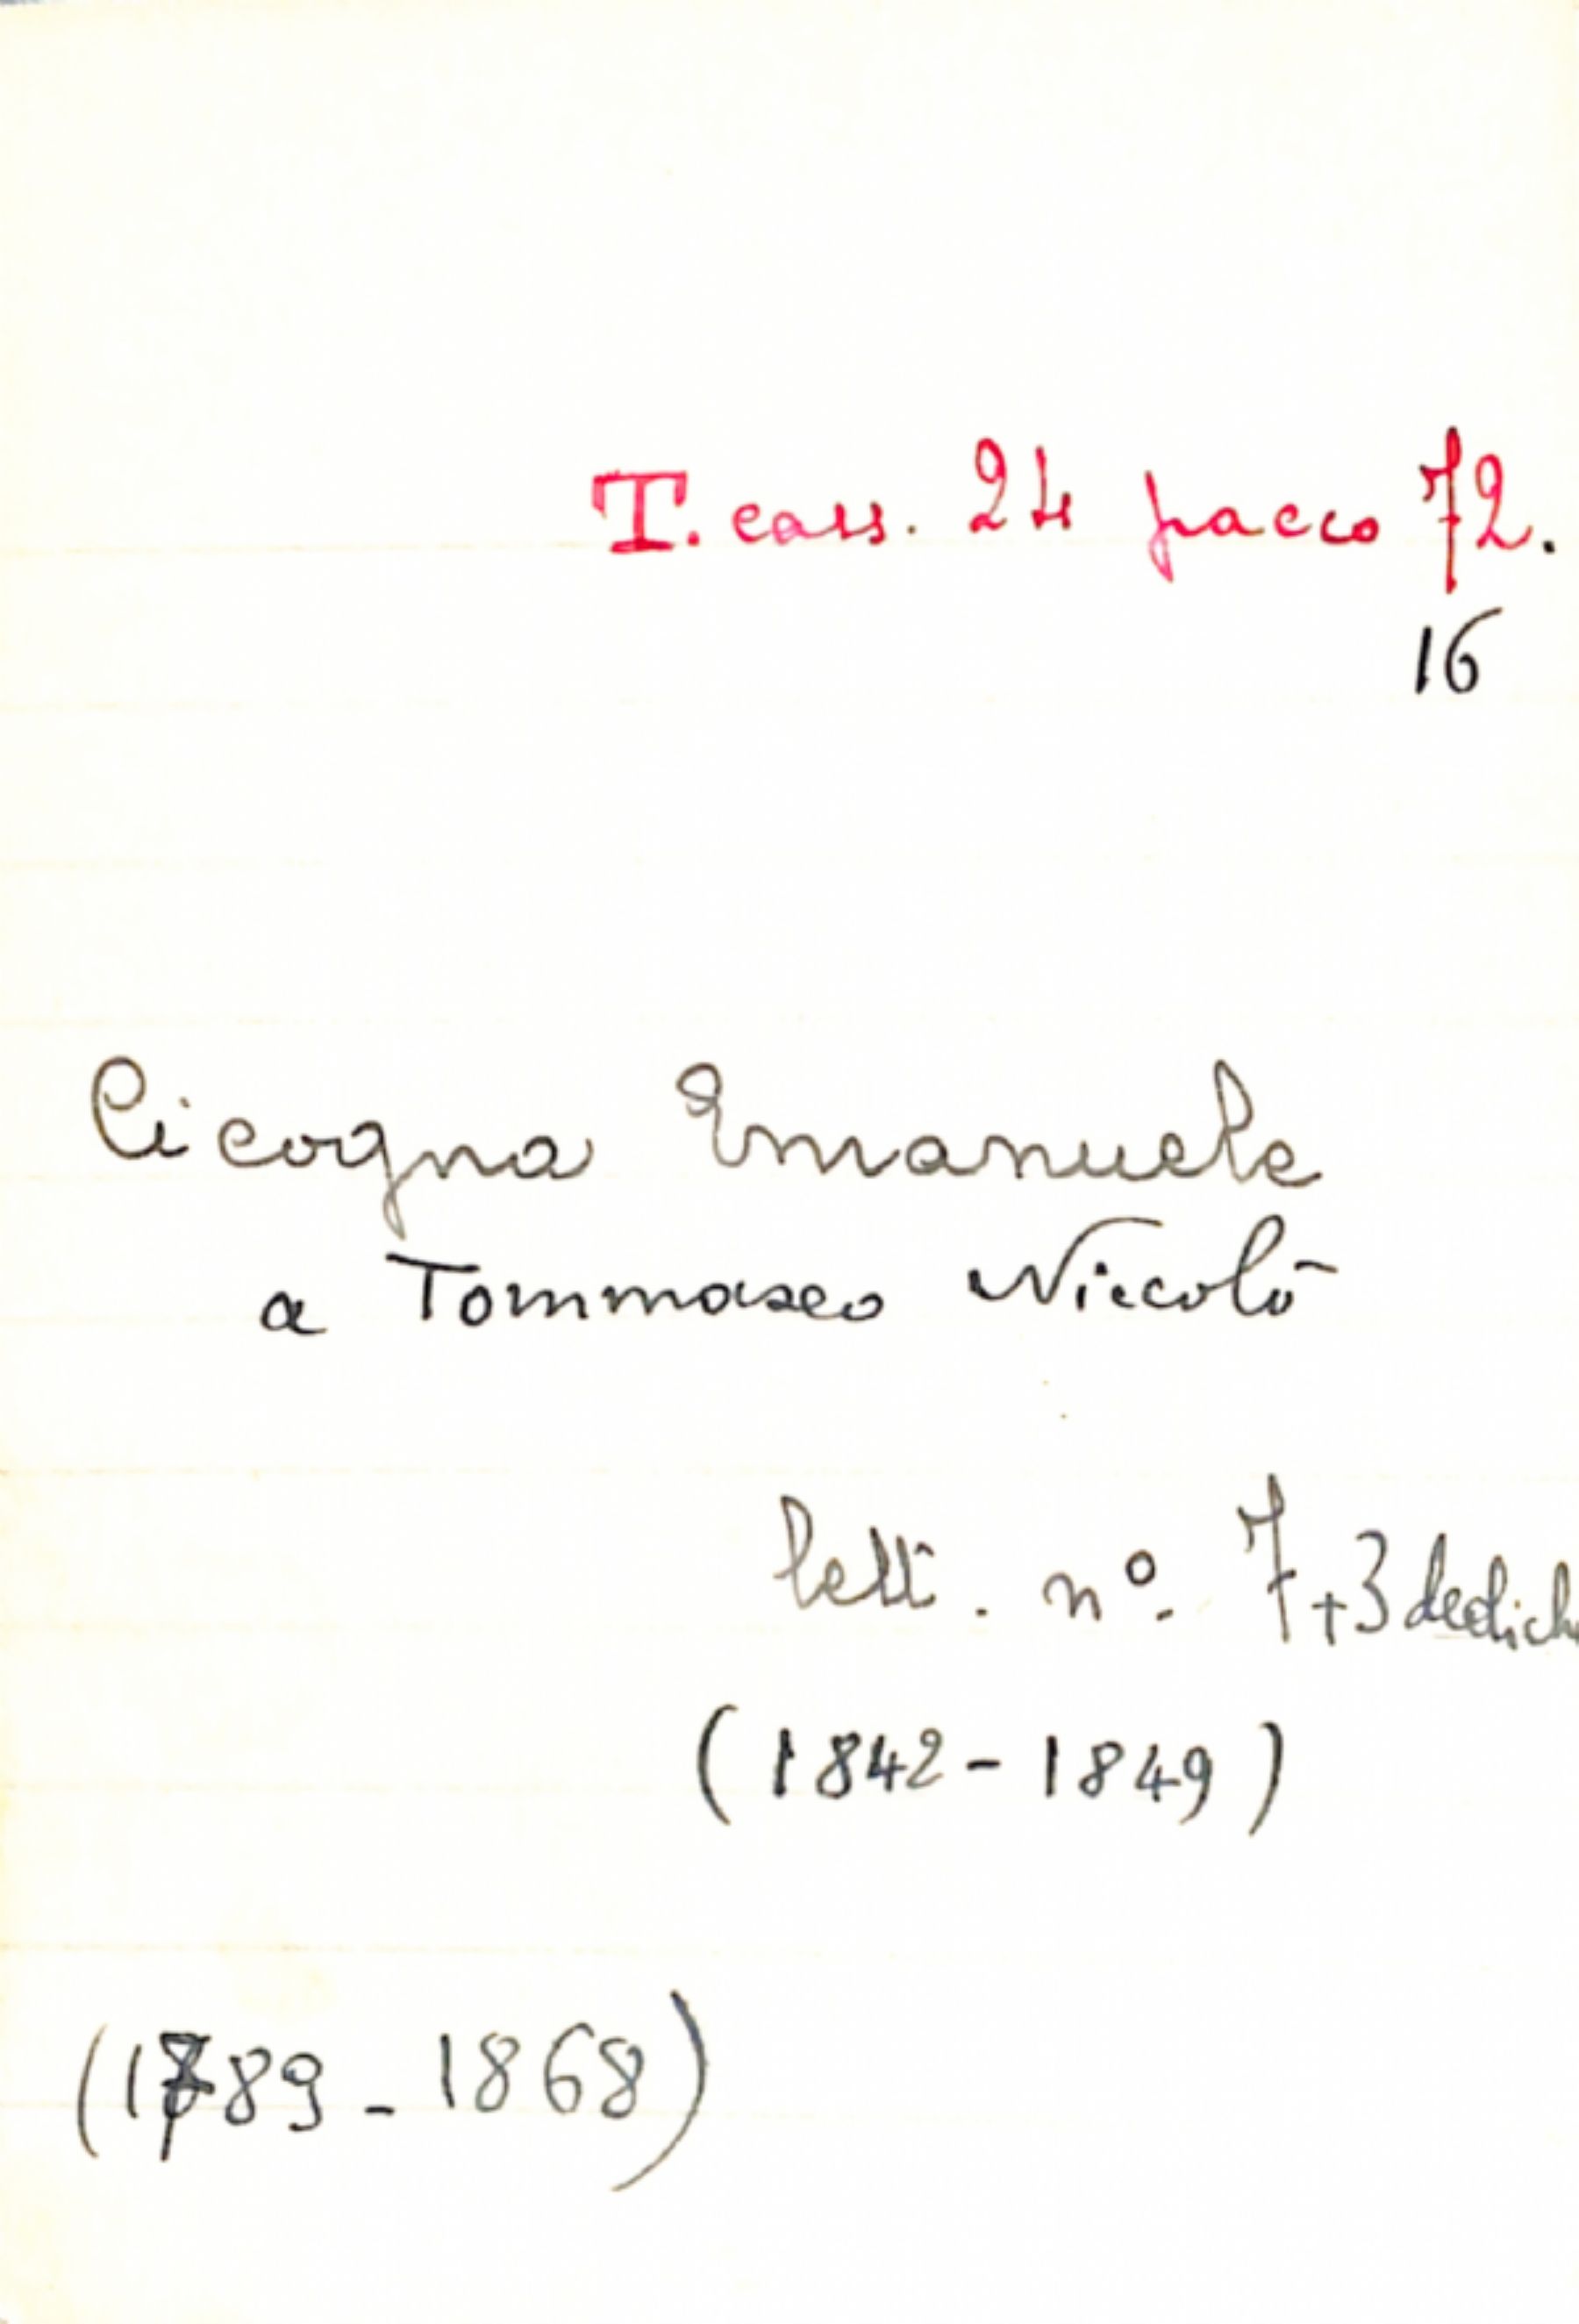 T. cass. 24 pacco 72.
16
Cicogna Emanuele
a Tommaseo Niccolò
lett. n.º 7+3 dedich
(1842-1849)
(1789-1868)